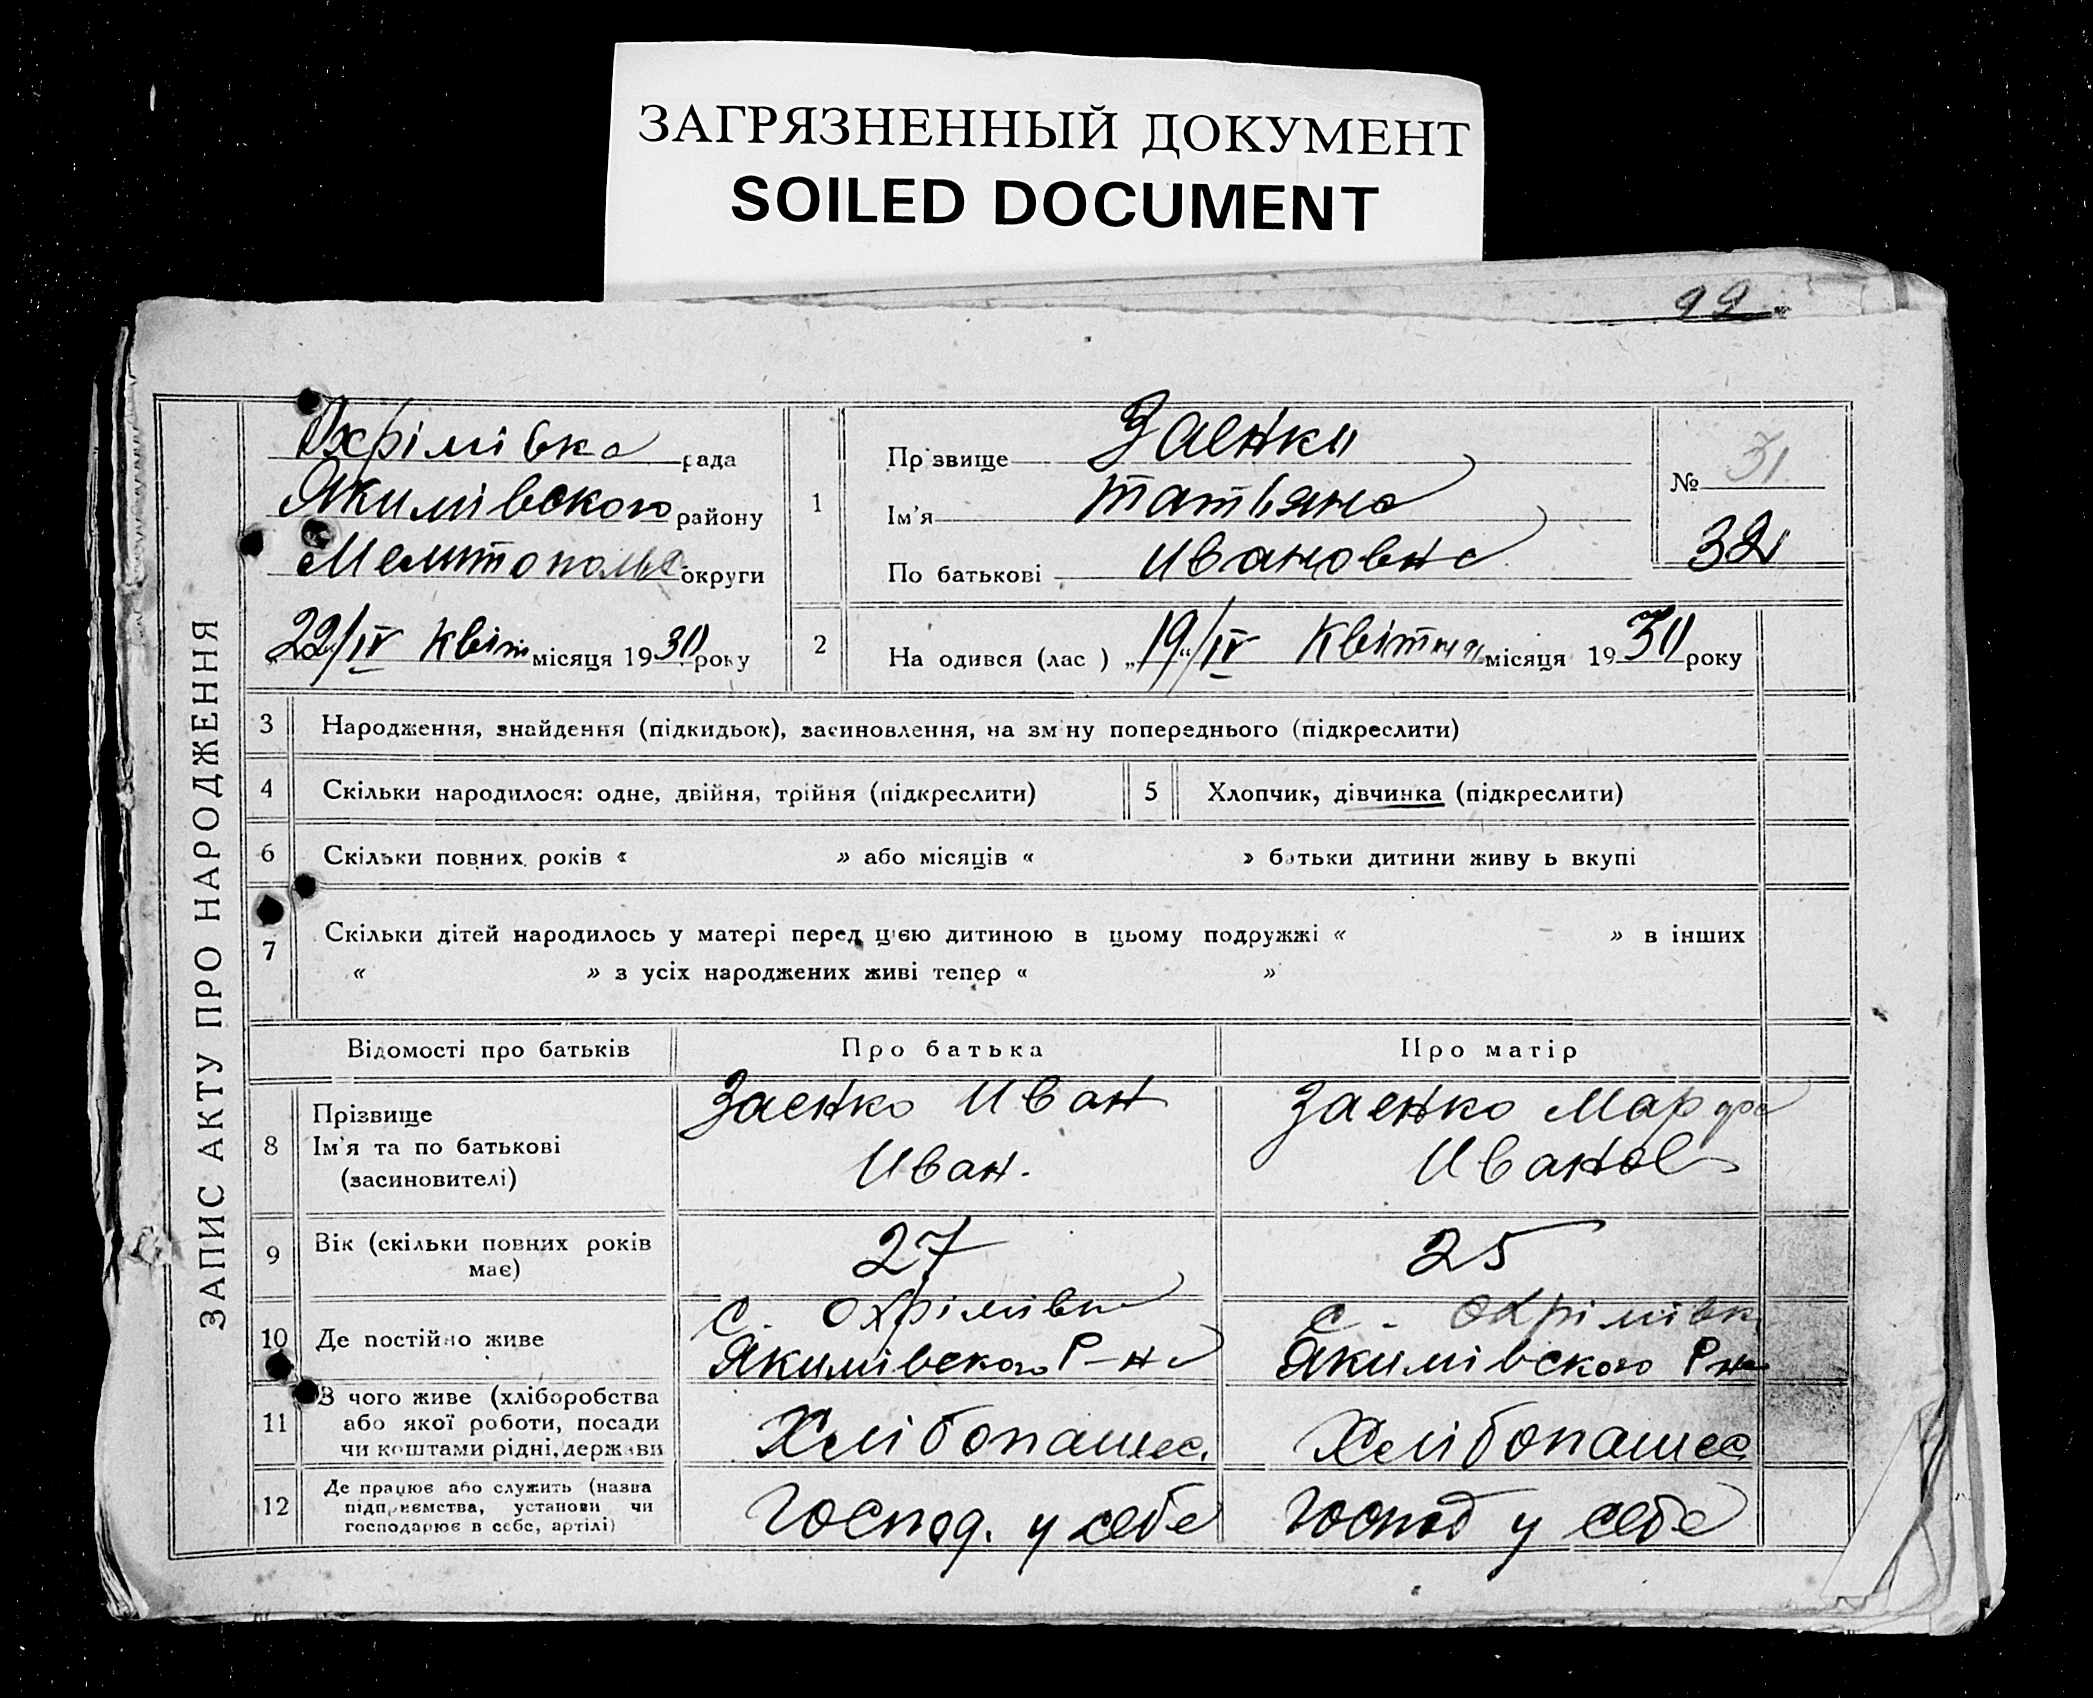 ЗАГРЯЗНЕННЫЙ ДОКУМЕНТ
SOILED DOCUMENT
99
ЗАПИС АКТУ ПРО НАРОДЖЕННЯ
Охрімівка рада
Якимівского району
Мелитополь округи
22/IV Квіт місяця 1930 року
1
Прізвище Заенко
Ім'я Татьяна
По батькові Ивановна
№ 31
32
2 Народився (лась) „19“/IV Квітня місяця 1930 року
3 Народження, знайдення (підкидьок), засиновлення, на зміну попереднього (підкреслити)
4 Скільки народилося: одне, двійня, трійня (підкреслити) 5 Хлопчик, дівчинка (підкреслити)
6 Скільки повних років « » або місяців « » батьки дитини живуть вкупі
7 Скільки дітей народилось у матері перед цією дитиною в цьому подружжі « » в інших
« » з усіх народжених живі тепер « »
Відомості про батьків Про батька Про матір
8 Прізвище
Ім'я та по батькові
(засиновителі)
Заенко Иван
Иван.
Заенко Марфа
Иванов
9 Вік (скільки повних років
має)
27
25
10 Де постійно живе
с. Охрімівка
Якимівского Р-на
с. Охрімівк
Якимівского Рна
11 З чого живе (хліборобства
або якої роботи, посади
чи коштами рідні, держави
Хлібопашес.
Хлібопашес
12 Де працює або служить (назва
підприємства, установи чи
господарює в себе, артілі)
Господ. у себе
Господ у себе